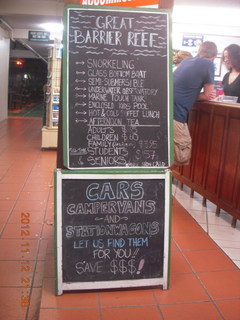 GREAT
BARRIER REEF
→ SNORKELING
→ GLASS BOTTOM BOAT
→ SEMI SUBMERSIBLE
→ UNDERWATER OBSERVATORY
→ MARINE TOUCH TANK
→ ENCLOSED KIDS POOL
→ HOT & COLD BUFFET LUNCH
→ AFTERNOON TEA
ADULTS $
CHILDREN $
FAMILY
STUDENTS
& SENIORS
CARS
CAMPERVANS
-AND-
STATIONWAGONS
LET US FIND THEM
FOR YOU!!
SAVE $$$!
2012.11.2